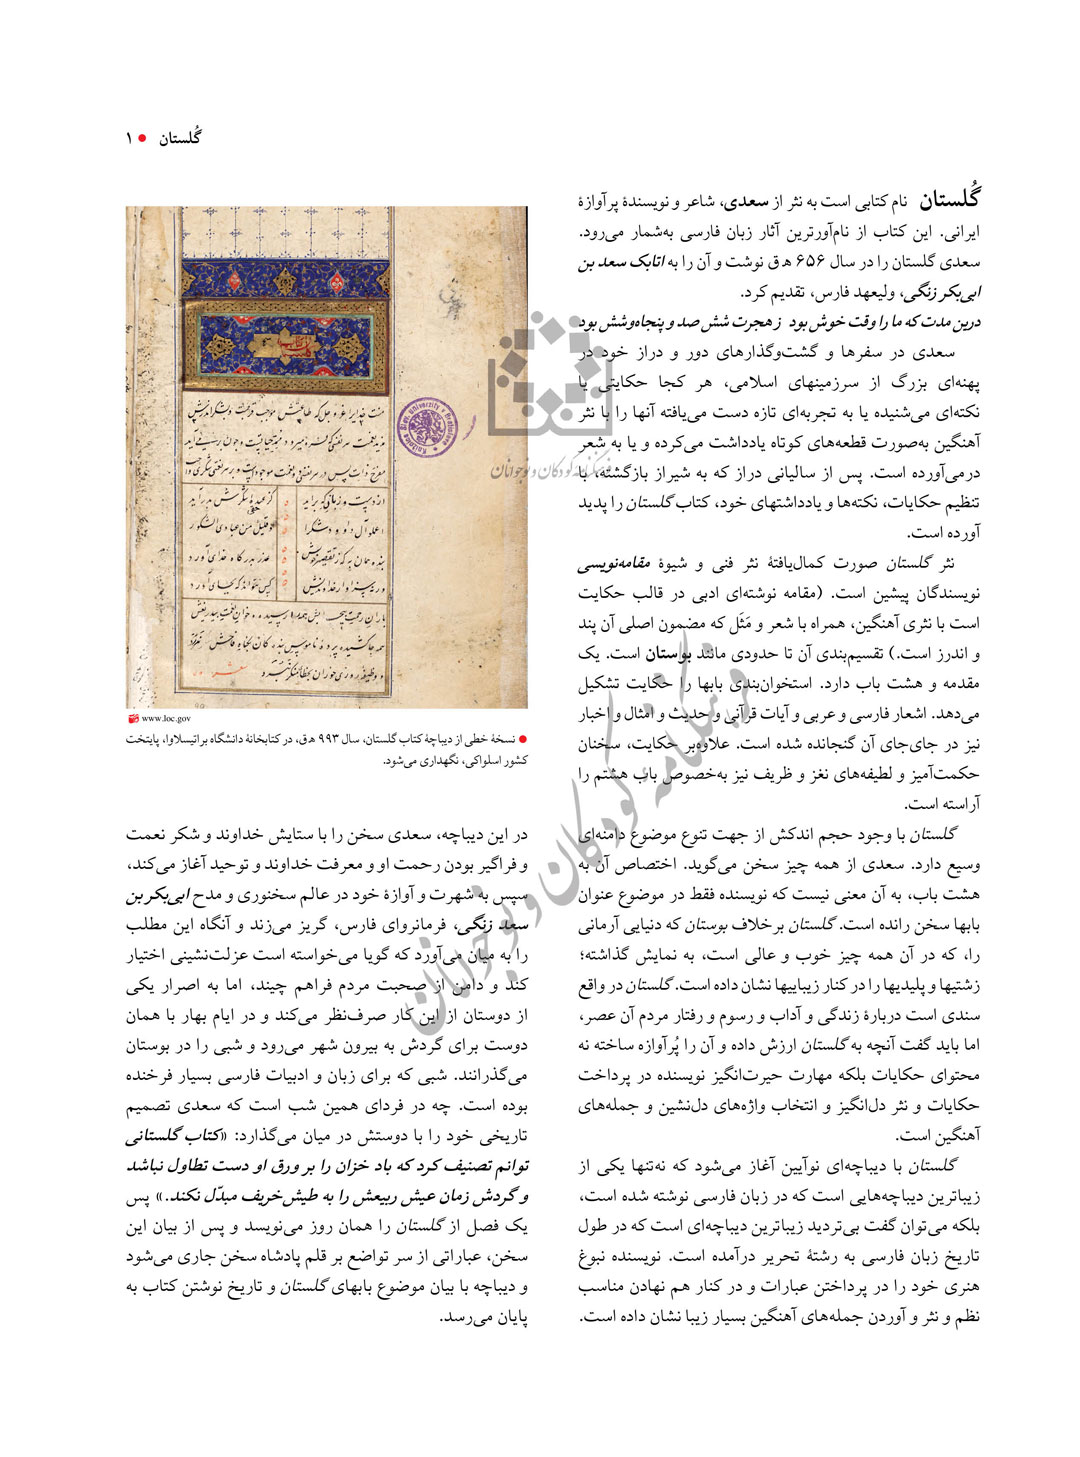 گُلستان • ۱
گُلستان نام کتابی است به نثر از سعدی، شاعر و نویسندهٔ پرآوازهٔ
ایرانی. این کتاب از نام‌آورترین آثار زبان فارسی به‌شمار می‌رود.
سعدی گلستان را در سال ۶۵۶ ه‍ ق نوشت و آن را به اتابک سعد بن
ابی‌بکر زنگی، ولیعهد فارس، تقدیم کرد.
درین مدت که ما را وقت خوش بود ز هجرت شش صد و پنجاه‌وشش بود
سعدی در سفرها و گشت‌وگذارهای دور و دراز خود در
پهنه‌ای بزرگ از سرزمینهای اسلامی، هر کجا حکایتی یا
نکته‌ای می‌شنیده یا به تجربه‌ای تازه دست می‌یافته آنها را با نثر
آهنگین به‌صورت قطعه‌های کوتاه یادداشت می‌کرده و یا به شعر
درمی‌آورده است. پس از سالیانی دراز که به شیراز بازگشته، با
تنظیم حکایات، نکته‌ها و یادداشتهای خود، کتاب گلستان را پدید
آورده است.
نثر گلستان صورت کمال‌یافتهٔ نثر فنی و شیوهٔ مقامه‌نویسی
نویسندگان پیشین است. (مقامه نوشته‌ای ادبی در قالب حکایت
است با نثری آهنگین، همراه با شعر و مَثَل که مضمون اصلی آن پند
و اندرز است.) تقسیم‌بندی آن تا حدودی مانند بوستان است. یک
مقدمه و هشت باب دارد. استخوان‌بندی بابها را حکایت تشکیل
می‌دهد. اشعار فارسی و عربی و آیات قرآنی و حدیث و امثال و اخبار
نیز در جای‌جای آن گنجانده شده است. علاوه‌بر حکایت، سخنان
حکمت‌آمیز و لطیفه‌های نغز و ظریف نیز به‌خصوص باب هشتم را
آراسته است.
گلستان با وجود حجم اندکش از جهت تنوع موضوع دامنه‌ای
وسیع دارد. سعدی از همه چیز سخن می‌گوید. اختصاص آن به
هشت باب، به آن معنی نیست که نویسنده فقط در موضوع عنوان
بابها سخن رانده است. گلستان برخلاف بوستان که دنیایی آرمانی
را، که در آن همه چیز خوب و عالی است، به نمایش گذاشته؛
زشتیها و پلیدیها را در کنار زیباییها نشان داده است. گلستان در واقع
سندی است دربارهٔ زندگی و آداب و رسوم و رفتار مردم آن عصر،
اما باید گفت آنچه به گلستان ارزش داده و آن را پُرآوازه ساخته نه
محتوای حکایات بلکه مهارت حیرت‌انگیز نویسنده در پرداخت
حکایات و نثر دل‌انگیز و انتخاب واژه‌های دل‌نشین و جمله‌های
آهنگین است.
گلستان با دیباچه‌ای نوآیین آغاز می‌شود که نه‌تنها یکی از
زیباترین دیباچه‌هایی است که در زبان فارسی نوشته شده است،
بلکه می‌توان گفت بی‌تردید زیباترین دیباچه‌ای است که در طول
تاریخ زبان فارسی به رشتهٔ تحریر درآمده است. نویسنده نبوغ
هنری خود را در پرداختن عبارات و در کنار هم نهادن مناسب
نظم و نثر و آوردن جمله‌های آهنگین بسیار زیبا نشان داده است.
www.loc.gov
• نسخهٔ خطی از دیباچهٔ کتاب گلستان، سال ۹۹۳ ه‍ ق، در کتابخانهٔ دانشگاه براتیسلاوا، پایتخت
کشور اسلواکی، نگهداری می‌شود.
در این دیباچه، سعدی سخن را با ستایش خداوند و شکر نعمت
و فراگیر بودن رحمت او و معرفت خداوند و توحید آغاز می‌کند،
سپس به شهرت و آوازهٔ خود در عالم سخنوری و مدح ابی‌بکر بن
سعد زنگی، فرمانروای فارس، گریز می‌زند و آنگاه این مطلب
را به میان می‌آورد که گویا می‌خواسته است عزلت‌نشینی اختیار
کند و دامن از صحبت مردم فراهم چیند، اما به اصرار یکی
از دوستان از این کار صرف‌نظر می‌کند و در ایام بهار با همان
دوست برای گردش به بیرون شهر می‌رود و شبی را در بوستان
می‌گذرانند. شبی که برای زبان و ادبیات فارسی بسیار فرخنده
بوده است. چه در فردای همین شب است که سعدی تصمیم
تاریخی خود را با دوستش در میان می‌گذارد: «کتاب گلستانی
توانم تصنیف کرد که باد خزان را بر ورق او دست تطاول نباشد
و گردش زمان عیش ربیعش را به طیش خریف مبدّل نکند.» پس
یک فصل از گلستان را همان روز می‌نویسد و پس از بیان این
سخن، عباراتی از سر تواضع بر قلم پادشاه سخن جاری می‌شود
و دیباچه با بیان موضوع بابهای گلستان و تاریخ نوشتن کتاب به
پایان می‌رسد.
فرهنگنامه کودکان و نوجوانان
فرهنگنامه کودکان و نوجوانان